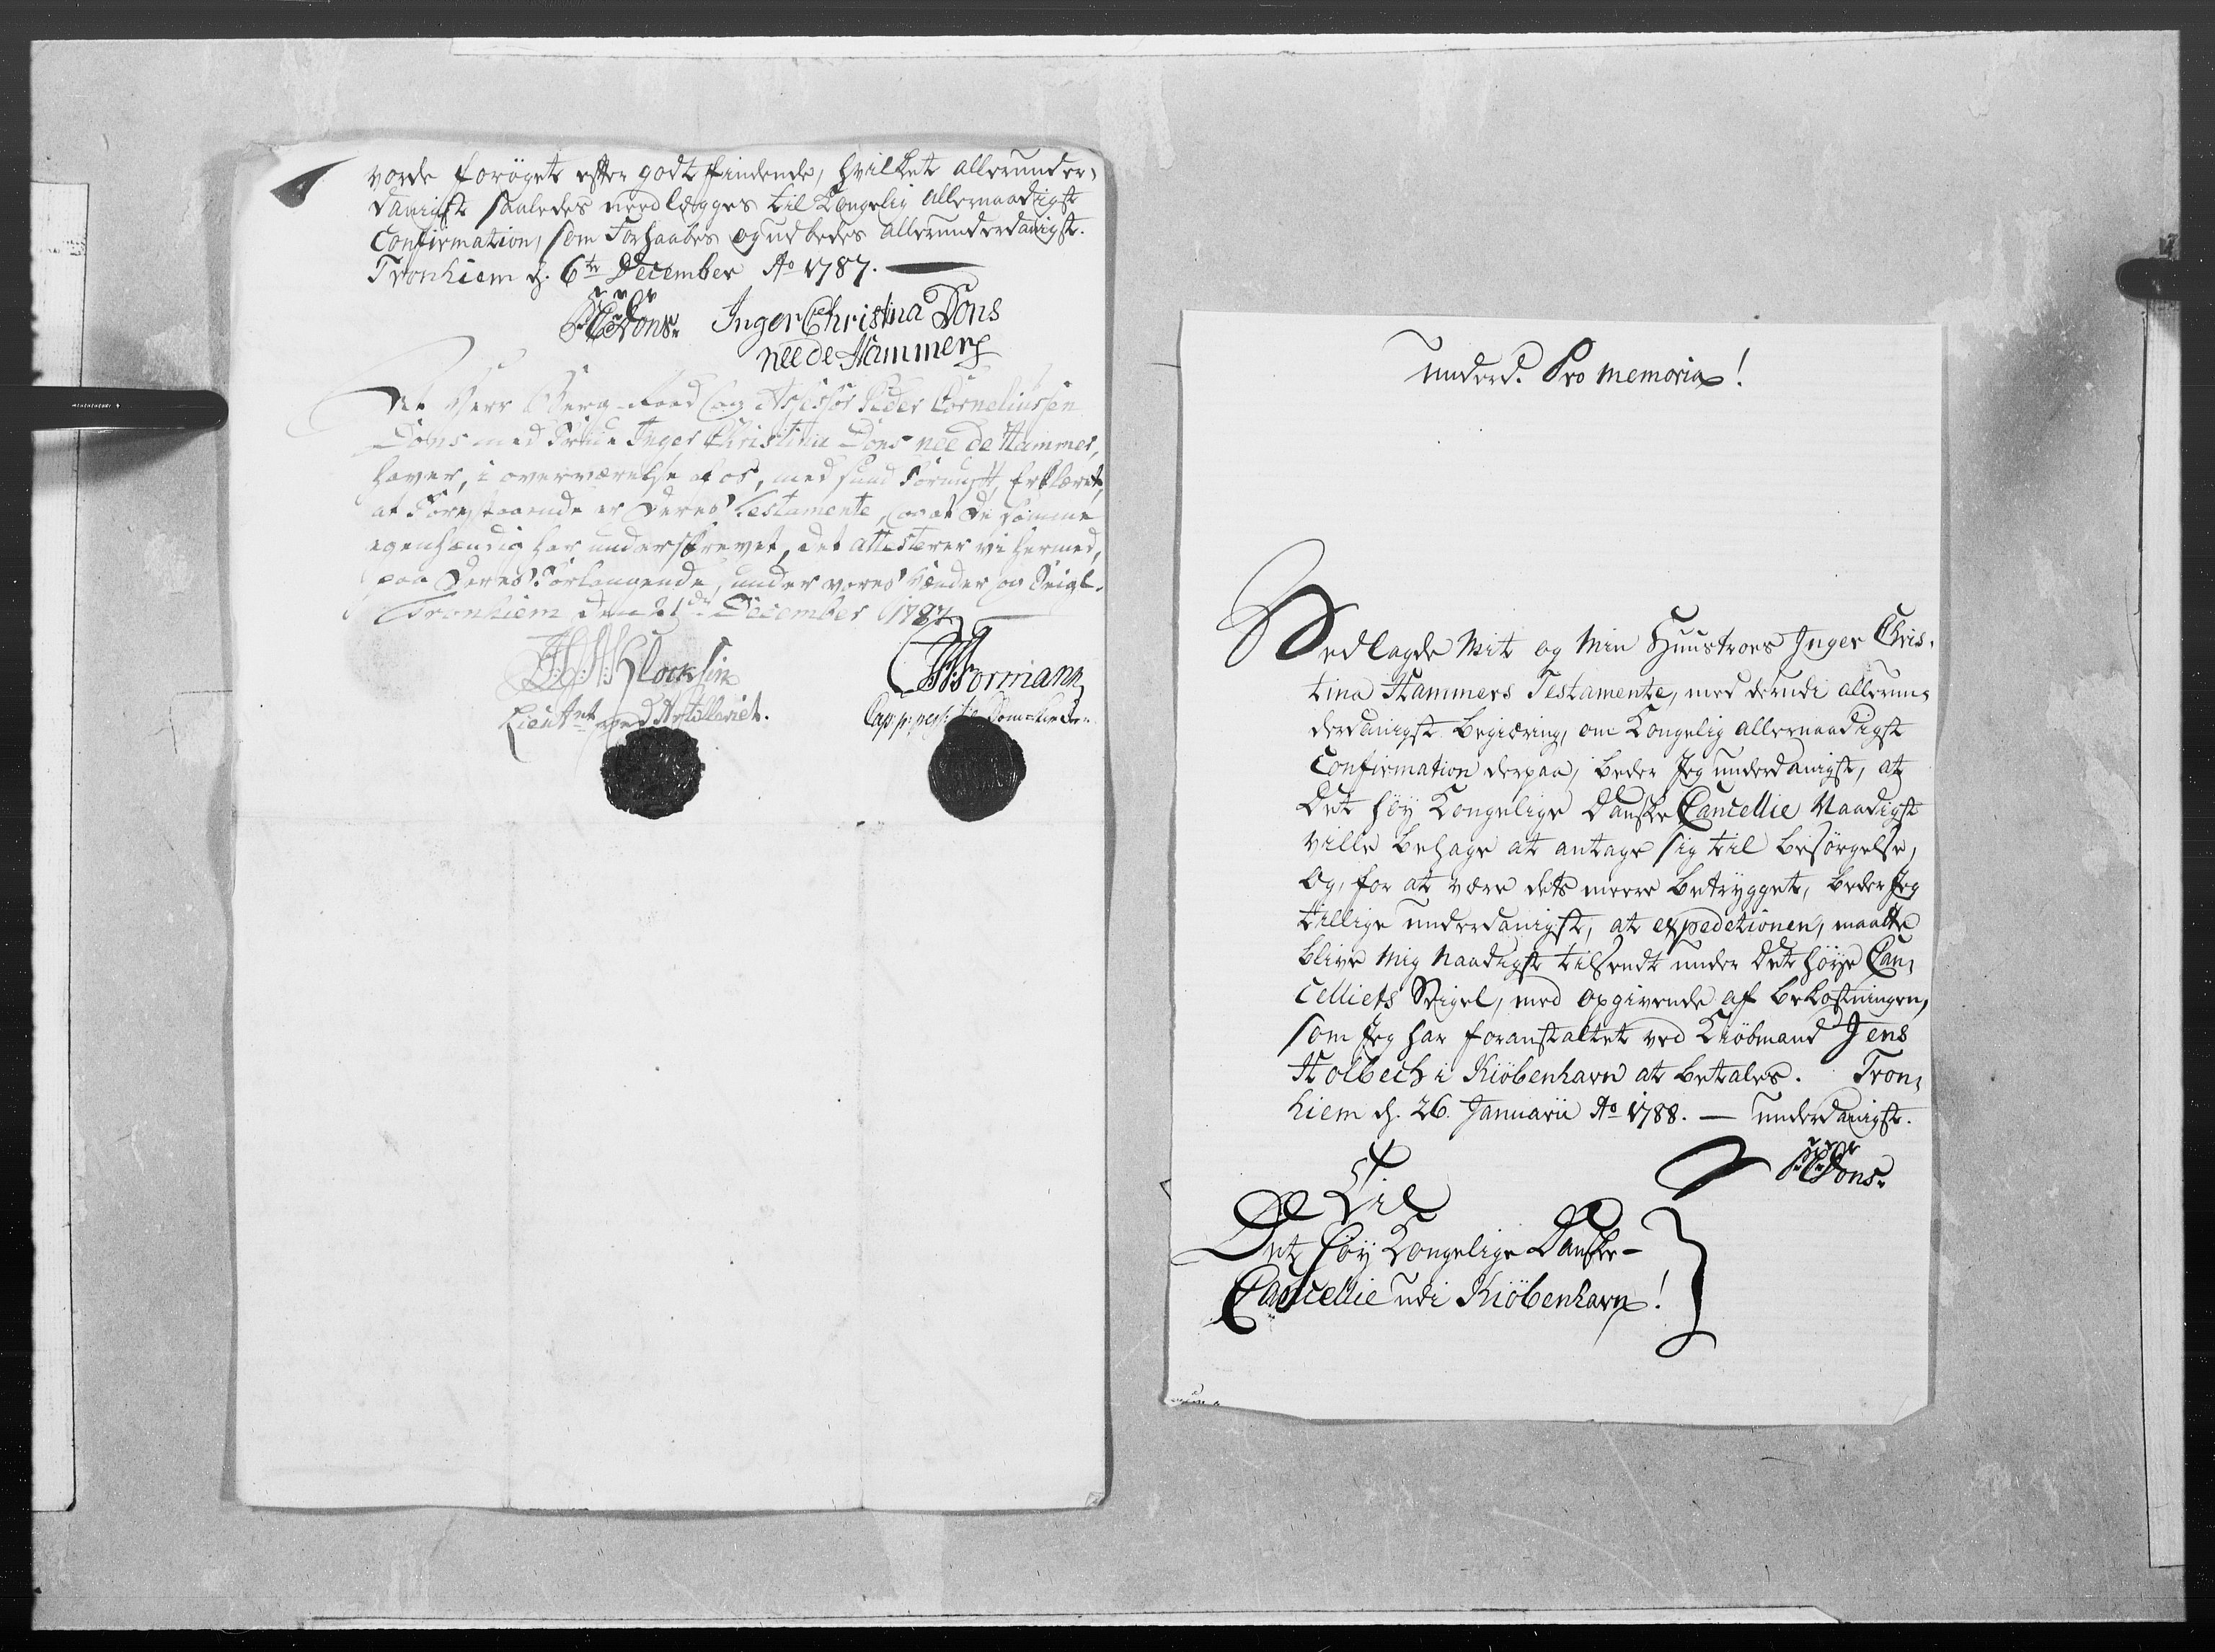 vorde forøget efter godtfindende, hvilket allerunder,
danigst saaledes nedlægges til Kongelig allernaadigst
Confirmation, som Forhaabes og udbedes allerunderdanigst.
Tronhiem d. 6te December Ao 1787.
PCDons. Inger Christina Dons
nee de Hammer
At Herr Berg-Raad og Assessor Peder Corneliussen
Dons med Frue Inger Christina Dons nee de Hammer,
haver, i overværelse af os, med sund Fornuft, Erklæret,
at Forestaaende er deres Testamente, og at De samme
egenhændig har underskrevet, det attesterer vi hermed,
paa Deres Forlangende, under vores Hænder og Seigl.
Tronhiem den 21de December 1787
Klocksin
Lieutnt ved Artilleriet.
Formann
Cap: p:
underd. Pro Memoria!
Vedlagde Mit og Min Huustroes Inger Chris,
tina Hammers Testamente, med derudi allerun,
derdanigst begiæring, om Kongelig allernaadigst
Confirmation derpaa, beder Jeg underdanigst, at
Det høy Kongelige Danske Cancellie Naadigst
ville behage at antage sig til besørgelse,
og, for at være dets meere betrygget, beder Jeg
tillige underdanigst, at expedetionen, maatte
blive Mig Naadigst tilsendt under Det høye Can,
celliets Seigel, med opgivende af bekostningen,
som Jeg har foranstaltet ved Kiøbmand Jens
Holbech i Kiöbenhavn at betales. Tron,
hiem d. 26. Januarii Ao 1788. — underdanigst.
PCDons.
Til
Det høy Kongelige Danske-
Cancellie udi Kiöbenhavn!